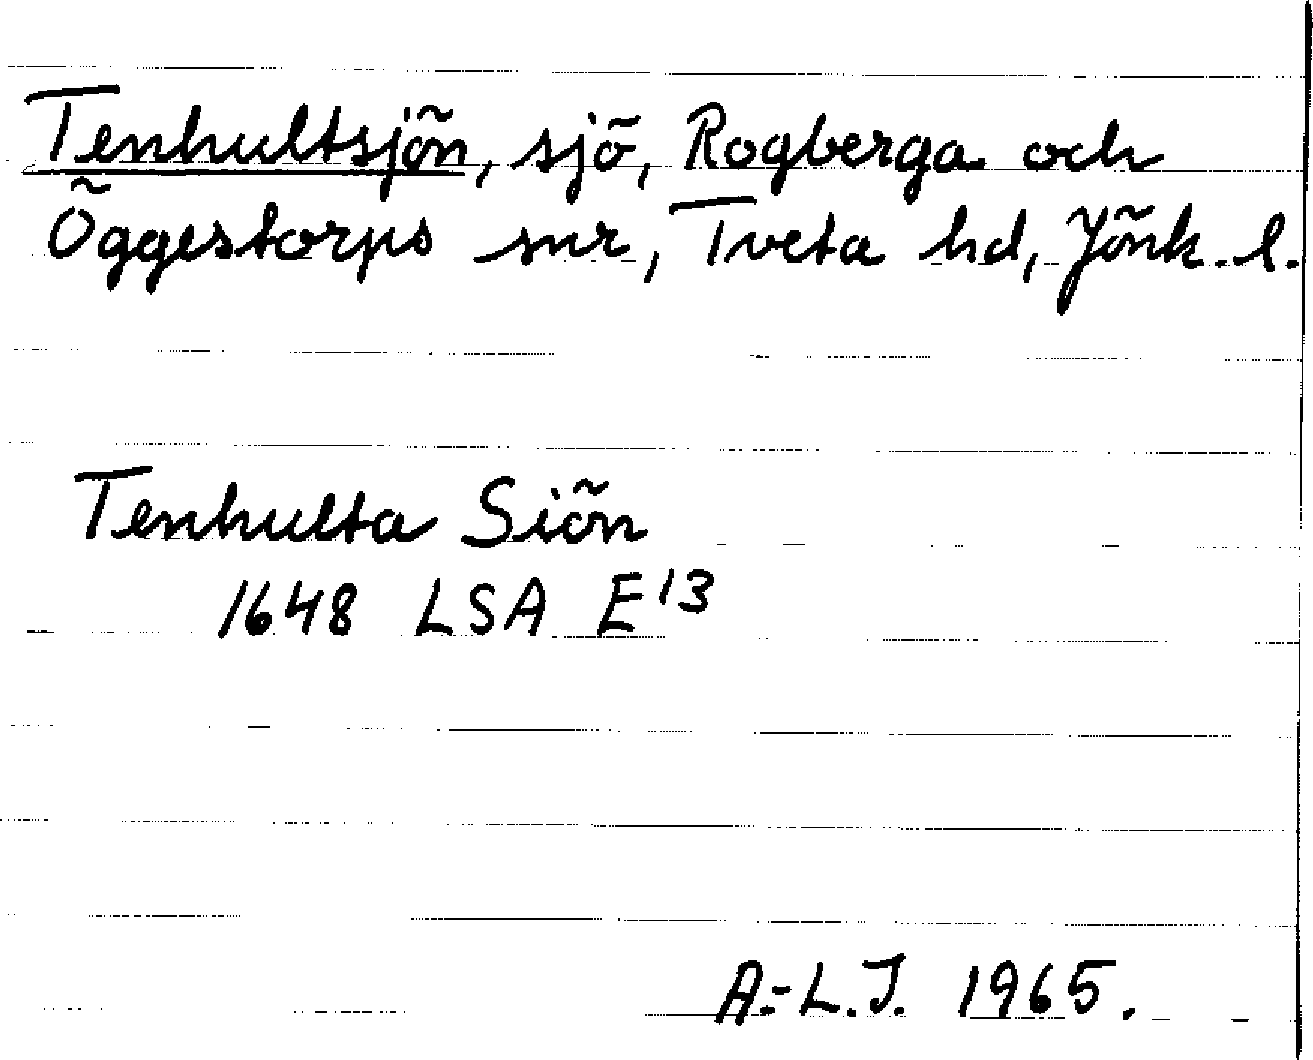 Tenhultsjön, sjö, Rogberga och
Öggestorps snr, Tveta hd, Jönk. l.
Tenhulta Siön
1648 LSA E13
A.-L.J. 1965.